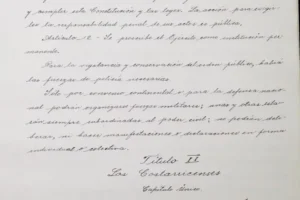 y cumplir esta Constitución y las leyes. La acción para exigir
la responsabilidad penal de sus actos es pública.
Artículo 12.- Se proscribe el Ejército como institución per
manente.
Para la vigilancia y conservación del orden público, habrá
las fuerzas de policía necesarias.
Sólo por convenio continental o para la defensa nacio
nal podrán organizarse fuerzas militares; unas y otras esta
rán siempre subordinadas al poder civil; no podrán deli
berar, ni hacer manifestaciones o declaraciones en forma
individual o colectiva.
Título II
Los Costarricenses
Capítulo Único